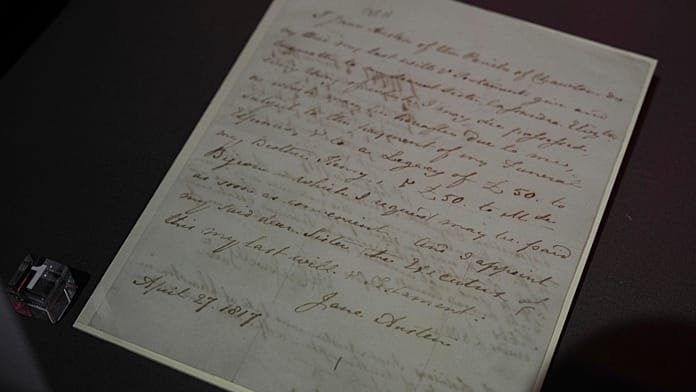 I Jane Austen of the Parish of Chawton do
by this my last will & Testament give and
bequeath to my dearest Sister Cassandra Elizth
every thing of which I may die possessed,
or which may be hereafter due to me,
subject to the payment of my Funeral
expences, & to a Legacy of £50. to
my Brother Henry, & £50. to Mde de
Bigeon – which I request may be paid
as soon as convenient. And I appoint
my said dear Sister the Executrix of
this my last will & Testament.
Jane Austen
April 27. 1817
1